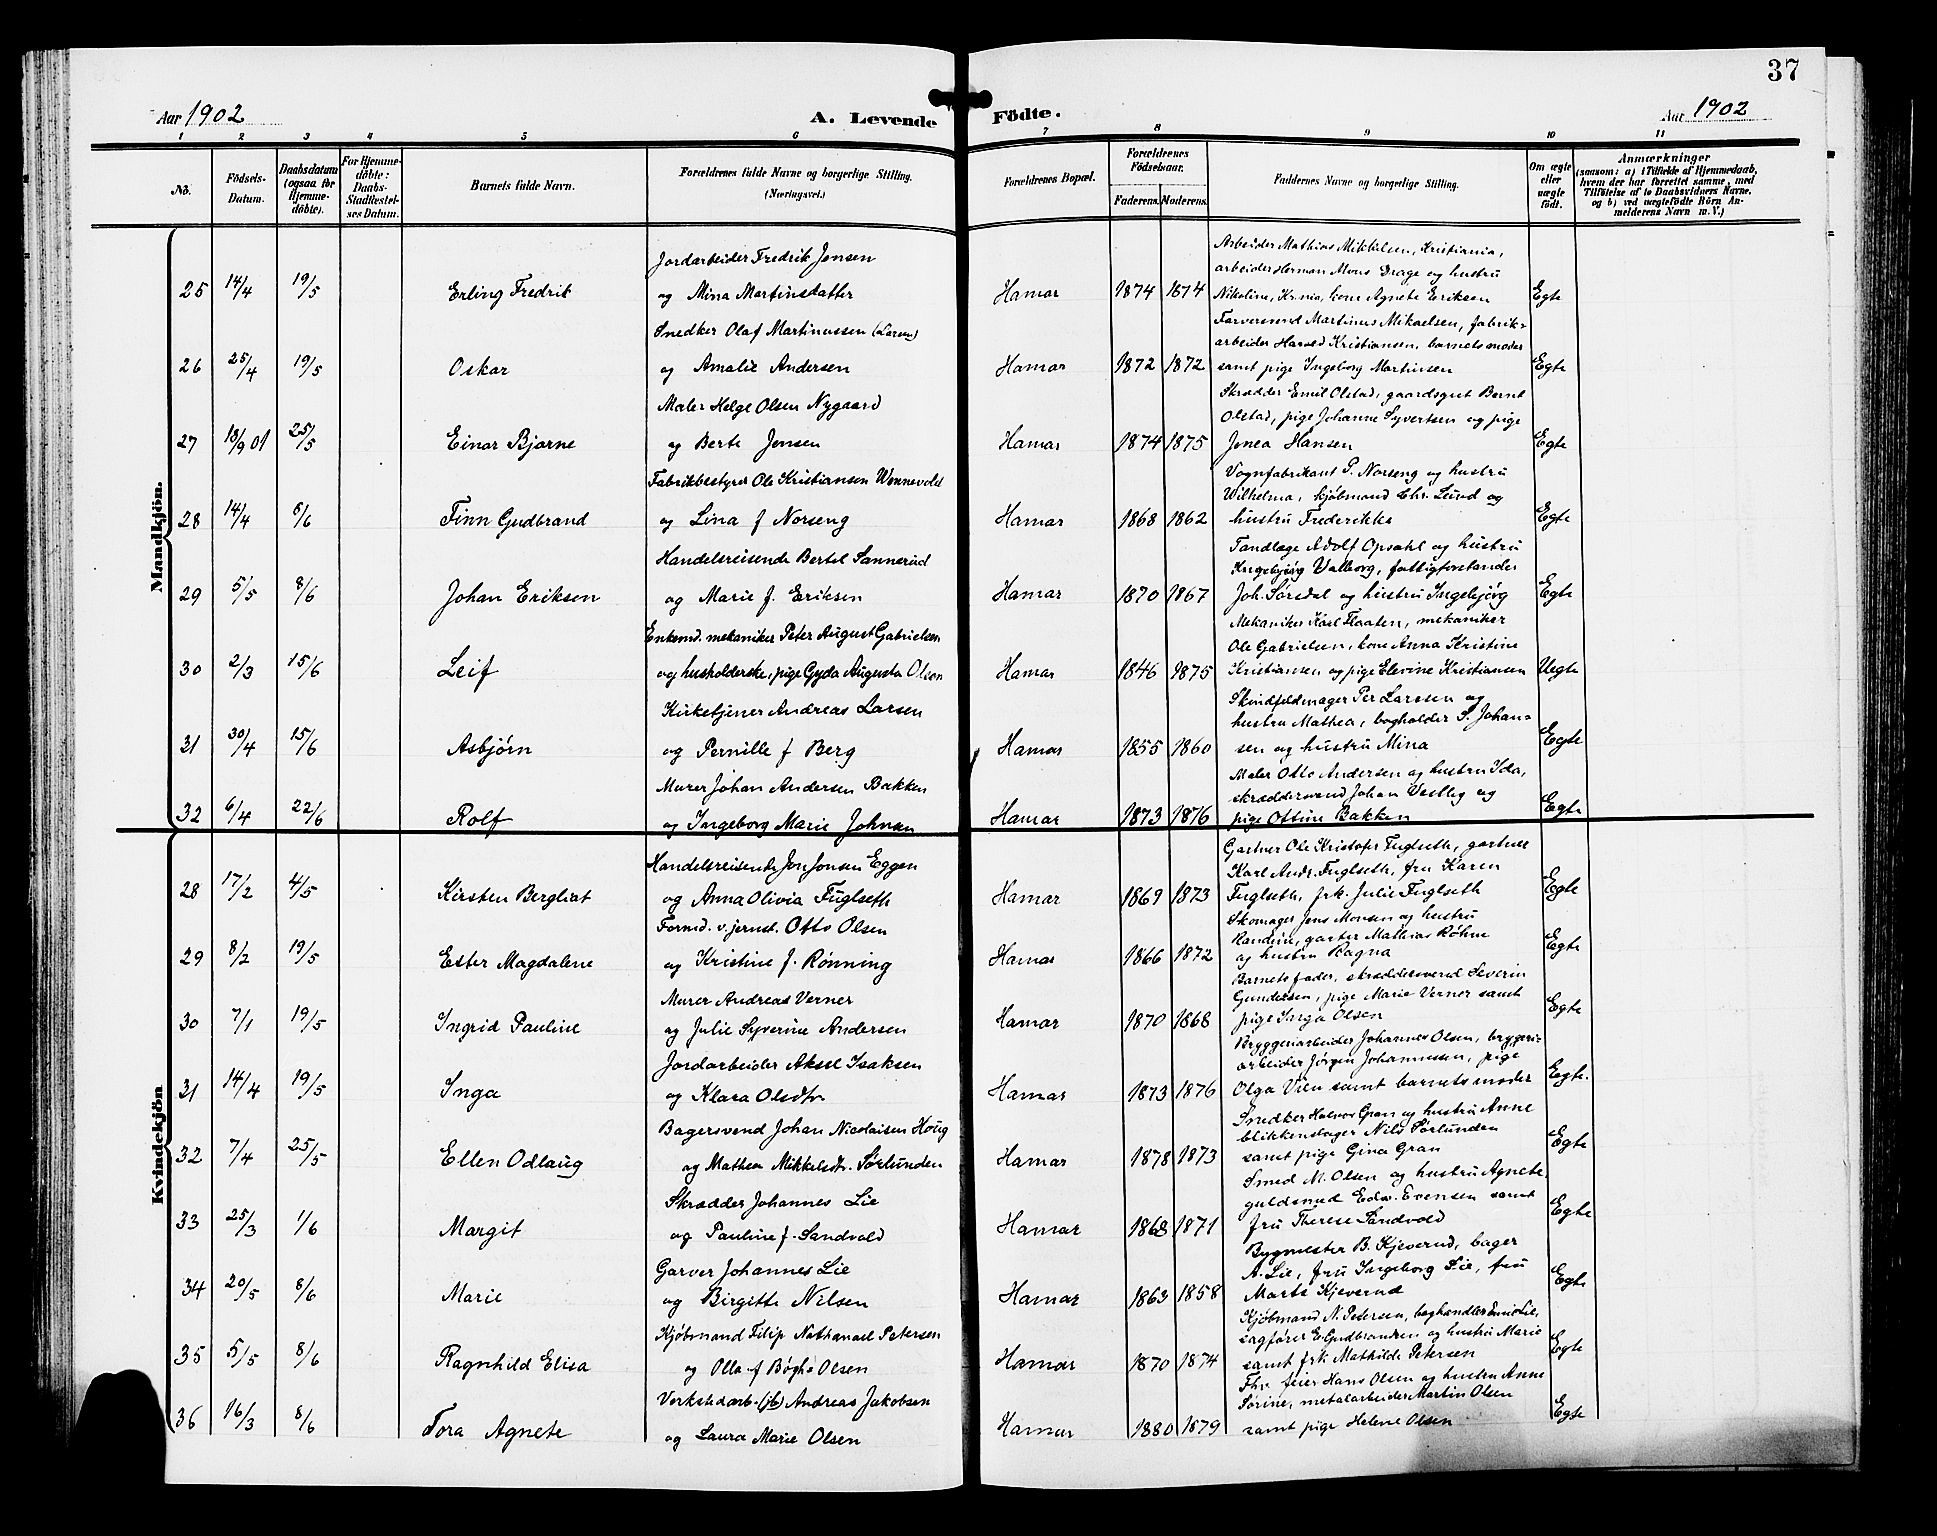 37
Aar 1902 A. Levende Födte. Aar 1902
1 2 3 4 5 6 7 8 9 10 11
No.
Födsels-Datum.
Daabsdatum (ogsaa for Hjemme-döbte).
For Hjemme-döbte: Daabs-Stadfæstel-ses Datum.
Barnets fulde Navn.
Forældrenes fulde Navne og borgerlige Stilling. (Næringsvei.)
Forældrenes Bopæl.
Forældrenes Födselsaar.
Faderens. Moderens.
Faddernes Navne og borgerlige Stilling.
Om ægte eller uægte født.
Anmærkninger
(saasom: a) i Tilfælde af Hjemmedaab, hvem der har forrettet samme, med Tilföielse af to Daabsvidners Navne, og b) ved uægtefödte Börn An-melderens Navn m. V.)
Mandkjön.
25 14/4 19/5 Erling Fredrik
Jordarbeider Fredrik Jensen
og Mina Martinsdatter
Hamar 1874 1874
Arbeider Mathias Mikkelsen, Kristiania,
arbeider Herman Mons Drage og hustru
Nikoline, Kr.nia, kone Agnete Eriksen
Egte
26 25/4 19/5 Oskar
Snedker Olaf Martinussen (Larsen)
og Amalie Andersen
Hamar 1872 1872
Farversvend Martinus Mikaelsen, fabrik-
arbeider Harald Kristiansen, barnets moder
samt pige Ingeborg Martinsen
Egte
27 18/9 01 25/5 Einar Bjarne
Maler Helge Olsen Nygaard
og Berte Jensen
Hamar 1874 1875
Skrædder Emil Olstad, gaardsgut Bernt
Olstad, pige Johanne Syvertsen og pige
Jenea Hansen
Egte
28 14/4 8/6 Finn Gudbrand
Fabrikbestyrer Ole Kristiansen Wennevold
og Lina f Norseng
Hamar 1868 1862
Vognfabrikant P. Norseng og hustru
Wilhelma, kjøbmand Chr. Lund og
hustru Frederikke
Egte
29 5/5 8/6 Johan Eriksen
Handelsreisende Bertel Sannerud
og Marie f. Eriksen
Hamar 1870 1867
Tandlæge Adolf Opsahl og hustru
Ingebjørg Valborg, fattigforstander
Joh. Sørdal og hustru Ingebjørg
Egte
30 2/3 15/6 Leif
Enkemd. mekaniker Peter August Gabrielsen
og husholderske, pige Gyda Augusta Olsen
Hamar 1846 1875
Mekaniker Karl Flaaten, mekaniker
Ole Gabrielsen, kone Anna Kristine
Kristiansen og pige Elevine Kristiansen
Uegte
31 30/4 15/6 Asbjørn
Kirketjener Andreas Larsen
og Pernille f Berg
Hamar 1855 1860
Skindfeldmager Per Larsen og
hustru Mathea, bogholder S. Johan-
sen og hustru Mina
Egte
32 6/4 22/6 Rolf
Murer Johan Andersen Bakken
og Ingeborg Marie Johnsen
Hamar 1873 1876
Maler Otto Andersen og hustru Ida,
skræddersvend Johan Vestby og
pige Ottine Bakken
Egte
Kvindekjön
28 17/2 4/5 Kirsten Bergliot
Handelsreisende Jon Jonsen Eggen
og Anna Olivia Fuglseth
Hamar 1869 1873
Gartner Ole Kristofer Fuglseth, gartner
Karl Andr. Fuglseth, fru Karen
Fuglseth, frk. Julie Fuglseth
Egte
29 8/2 19/5 Ester Magdalene
Formd. v. jernst. Otto Olsen
og Kristine f. Rønning
Hamar 1866 1872
Skomager Jens Monsen og hustru
Randine, garter Mathias Røhne
og hustru Ragna
Egte
30 7/1 19/5 Ingrid Pauline
Murer Andreas Verner
og Julie Syverine Andersen
Hamar 1870 1868
Barnets fader, skræddersvend Severin
Gundersen, pige Marie Verner samt
pige Inga Olsen
Egte
31 14/4 19/5 Inga
Jordarbeider Aksel Isaksen
og Klara Olsdtr
Hamar 1873 1876
Bryggeriarbeider Johannes Olsen, bryggeri-
arbeider Jørgen Johannessen, pige
Olga Vien samt barnets moder
Egte.
32 7/4 25/5 Ellen Odlaug
Bagersvend Johan Nicolaisen Houg
og Mathea Mikkelsdtr. Sørlunden
Hamar 1878 1873
Snedker Halvor Gran og hustru Anne
blikkenslager Nils Sørlunden
samt pige Gina Gran
Egte
33 25/3 1/6 Margit
Skrædder Johannes Lie
og Pauline f. Sandvold
Hamar 1868 1871
Smed M. Olsen og hustru Agnete,
guldsmed Edv. Evensen samt
fru Therese Sandvold
Egte
34 20/5 8/6 Marie
Garver Johannes Lie
og Birgitte Nilsen
Hamar 1863 1858
Bygmester B. Kjeverud, bager
A. Lie, fru Ingeborg Lie, fru
Marte Kjeverud
Egte
35 5/5 8/6 Ragnhild Elisa
Kjøbmand Filip Nathanael Petersen
og Olla f Bøghe Olsen
Hamar 1870 1874
Kjøbmand N. Petersen, boghandler Emil Lie,
sagfører E. Gudbrandsen og hustru Marie
samt frk Mathilde Petersen
Egte
36 16/3 8/6 Tora Agnete
Verkstedarb. (jb) Andreas Jakobsen
og Laura Marie Olsen
Hamar 1880 1879
Fhv. feier Hans Olsen og hustru Anne
Sørine, metalarbeider Martin Olsen
samt pige Helene Olsen
Egte